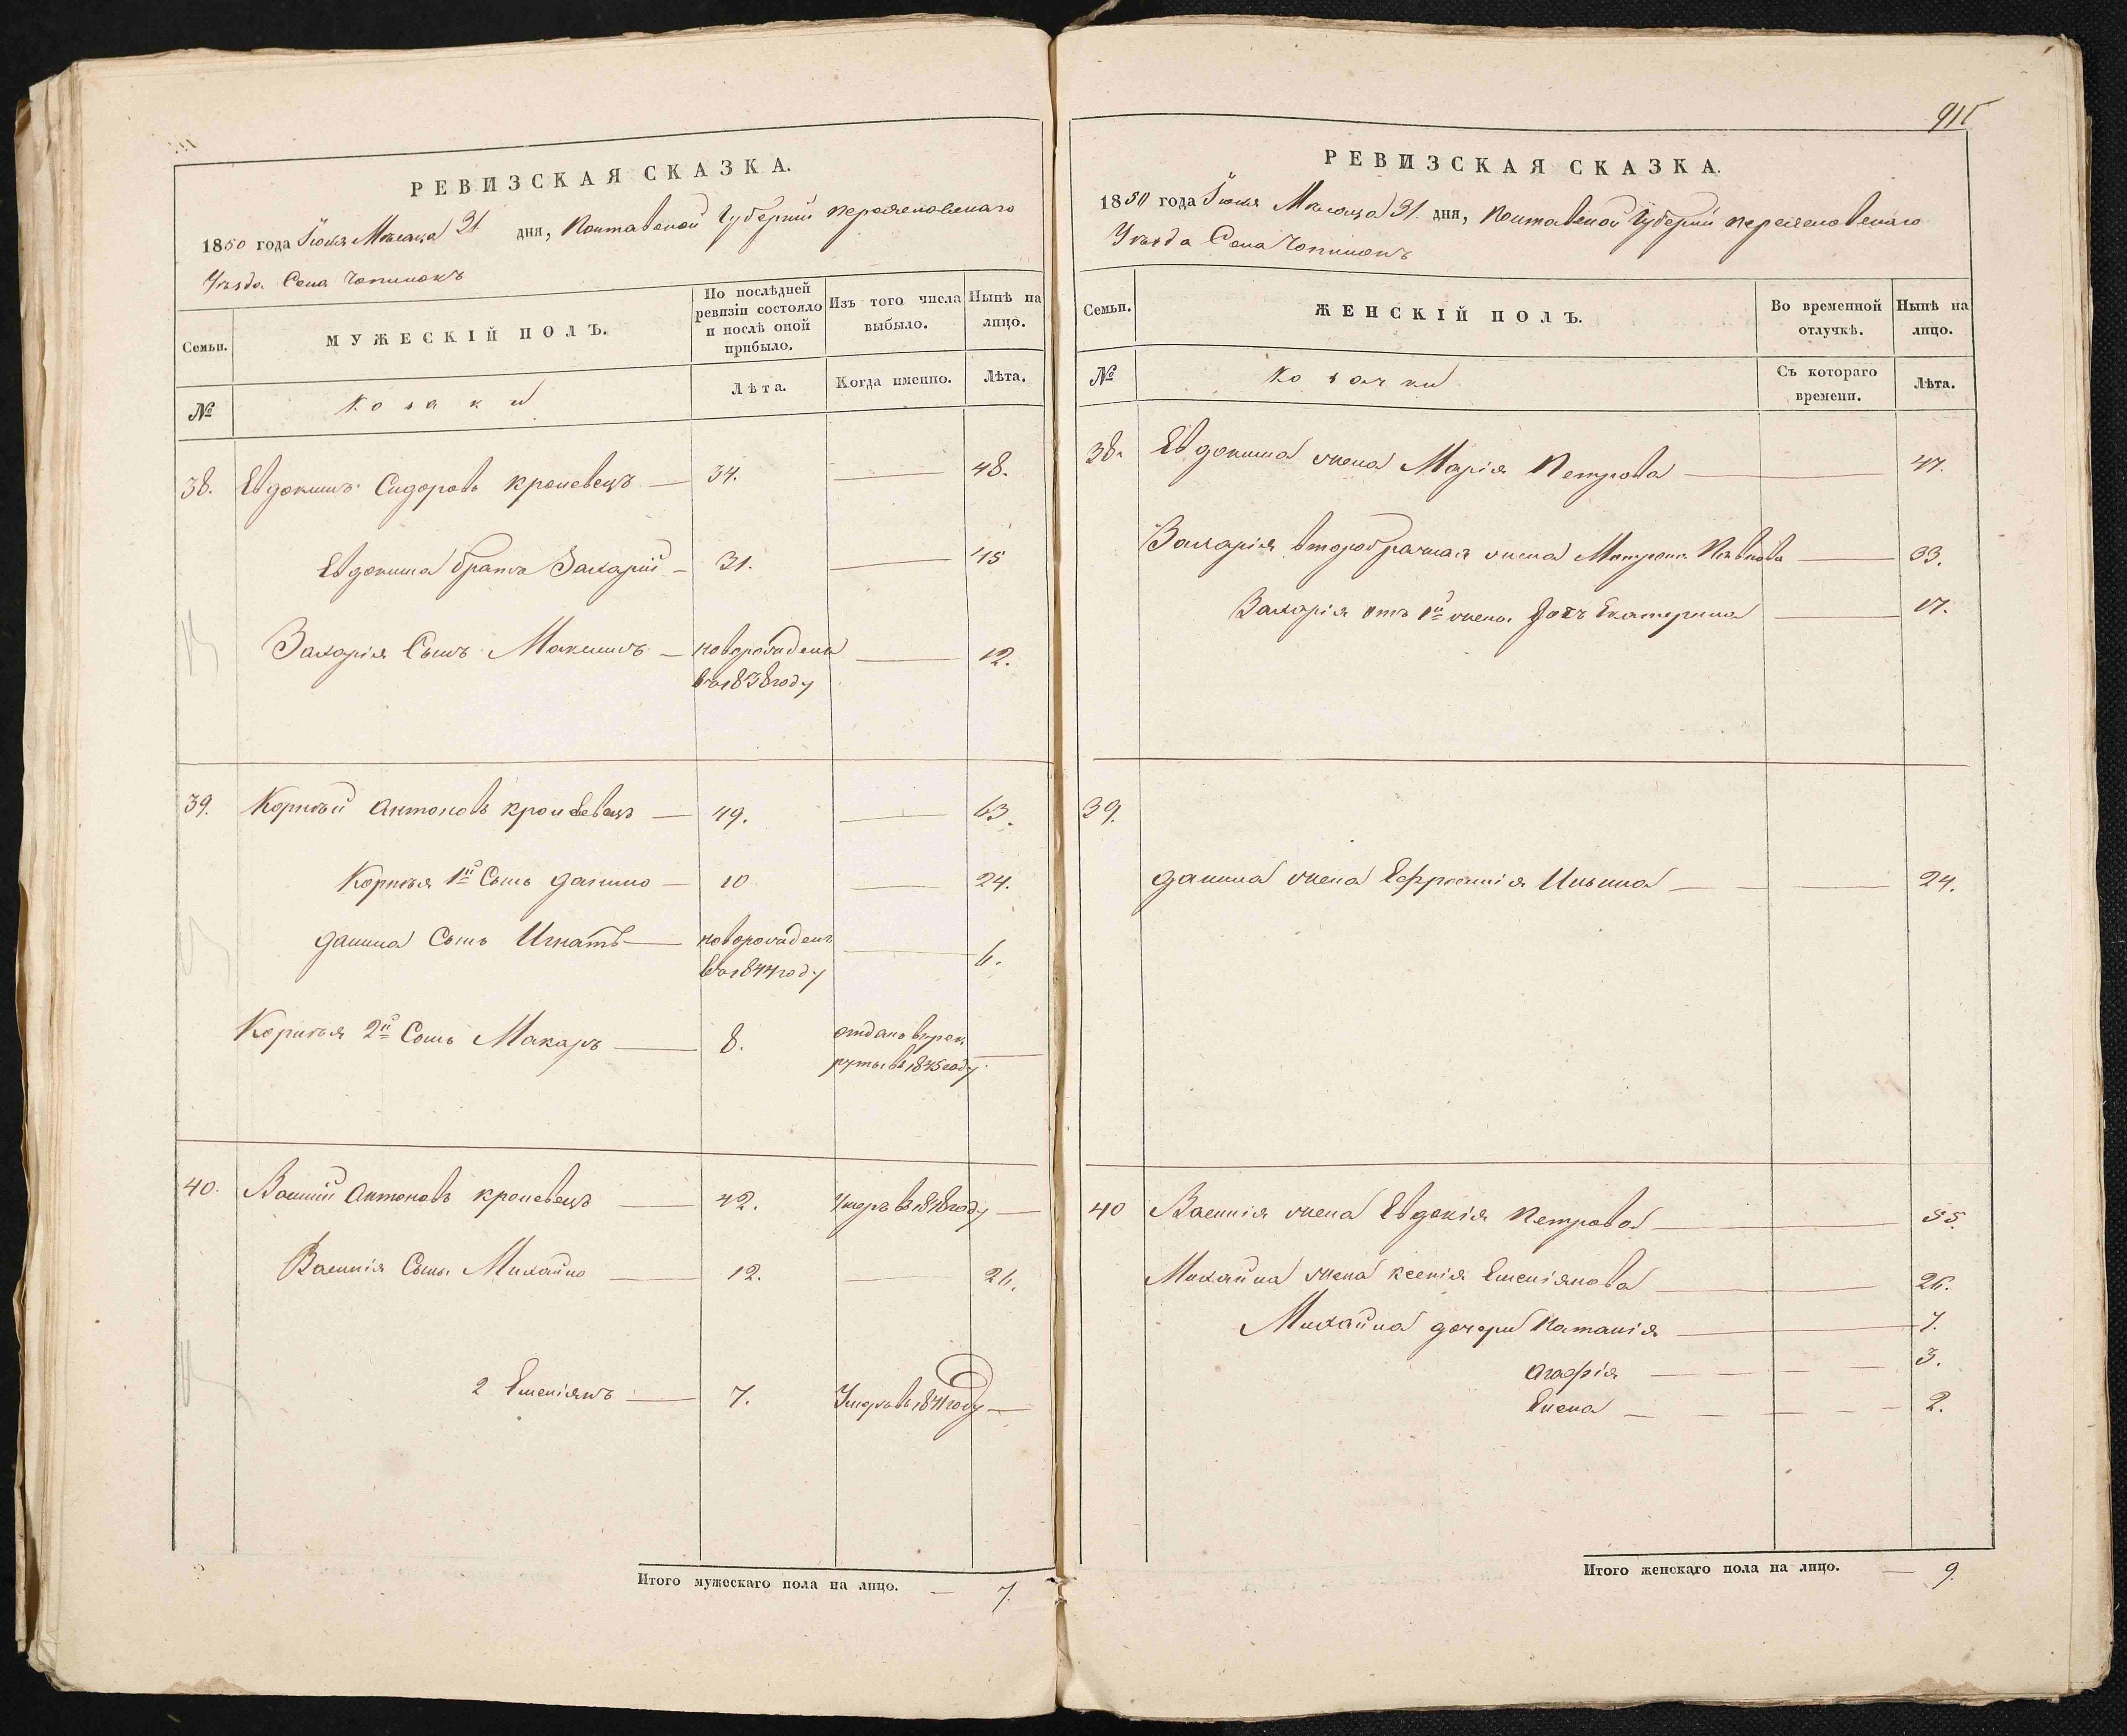 РЕВИЗСКАЯ СКАЗКА.
1850 года Іюля Мѣсяца 31 дня, Полтавской Губерніи Переяславскаго
Уѣзда Села Чопилокъ
Семьи.
МУЖЕСКІЙ ПОЛЪ.
По послѣдней ревизіи состояло и послѣ оной прибыло.
Изъ того числа выбыло.
Нынѣ на лицо.
№
Козаки
Лѣта.
Когда именно.
Лѣта.
38. Евдокимъ Сидоровъ Кропевецъ — 34. — 48.
Евдокима братъ Захарій — 31. — 45
Захарія Сынъ Максимъ — новорожденъ — 12.
въ 1838 году
39. Корнѣй Антоновъ Кропевецъ — 49. — 63.
Корнѣя 1й Сынъ Данило — 10 — 24.
Данила Сынъ Игнатъ — новорожденъ — 6.
въ 1844 году
Корнѣя 2й Сынъ Макаръ — 8. отданъ въ рек —
руты въ 1845 году
40. Василій Антоновъ Кропевецъ — 42. Умеръ въ 1848 году —
Василія Сынъ Михайло — 12. — 26.
2 Емеліянъ — 7. Умеръ въ 1841 году —
Итого мужескаго пола на лицо. — 7.
915
РЕВИЗСКАЯ СКАЗКА.
1850 года Іюля Мѣсяца 31. дня, Полтавской Губерніи Переяславскаго
Уѣзда Села Чопилокъ
Семьи.
ЖЕНСКІЙ ПОЛЪ.
Во временной отлучкѣ.
Нынѣ на лицо.
№
Козачки
Съ котораго времени.
Лѣта.
38. Евдокима жена Марія Петрова — 47.
Захарія второбрачная жена Матрона — 33.
Захарія отъ 1й жены дочь Екатерина — 17.
39.
Данила жена Ефросинія Ильина — 24.
40 Василія жена Евдокія Петрова — 55.
Михайла жена Ксенія Емеліянова — 26.
Михайла дочери Наталія — 7.
Агафія — 3.
Елена — 2.
Итого женскаго пола на лицо. — 9.